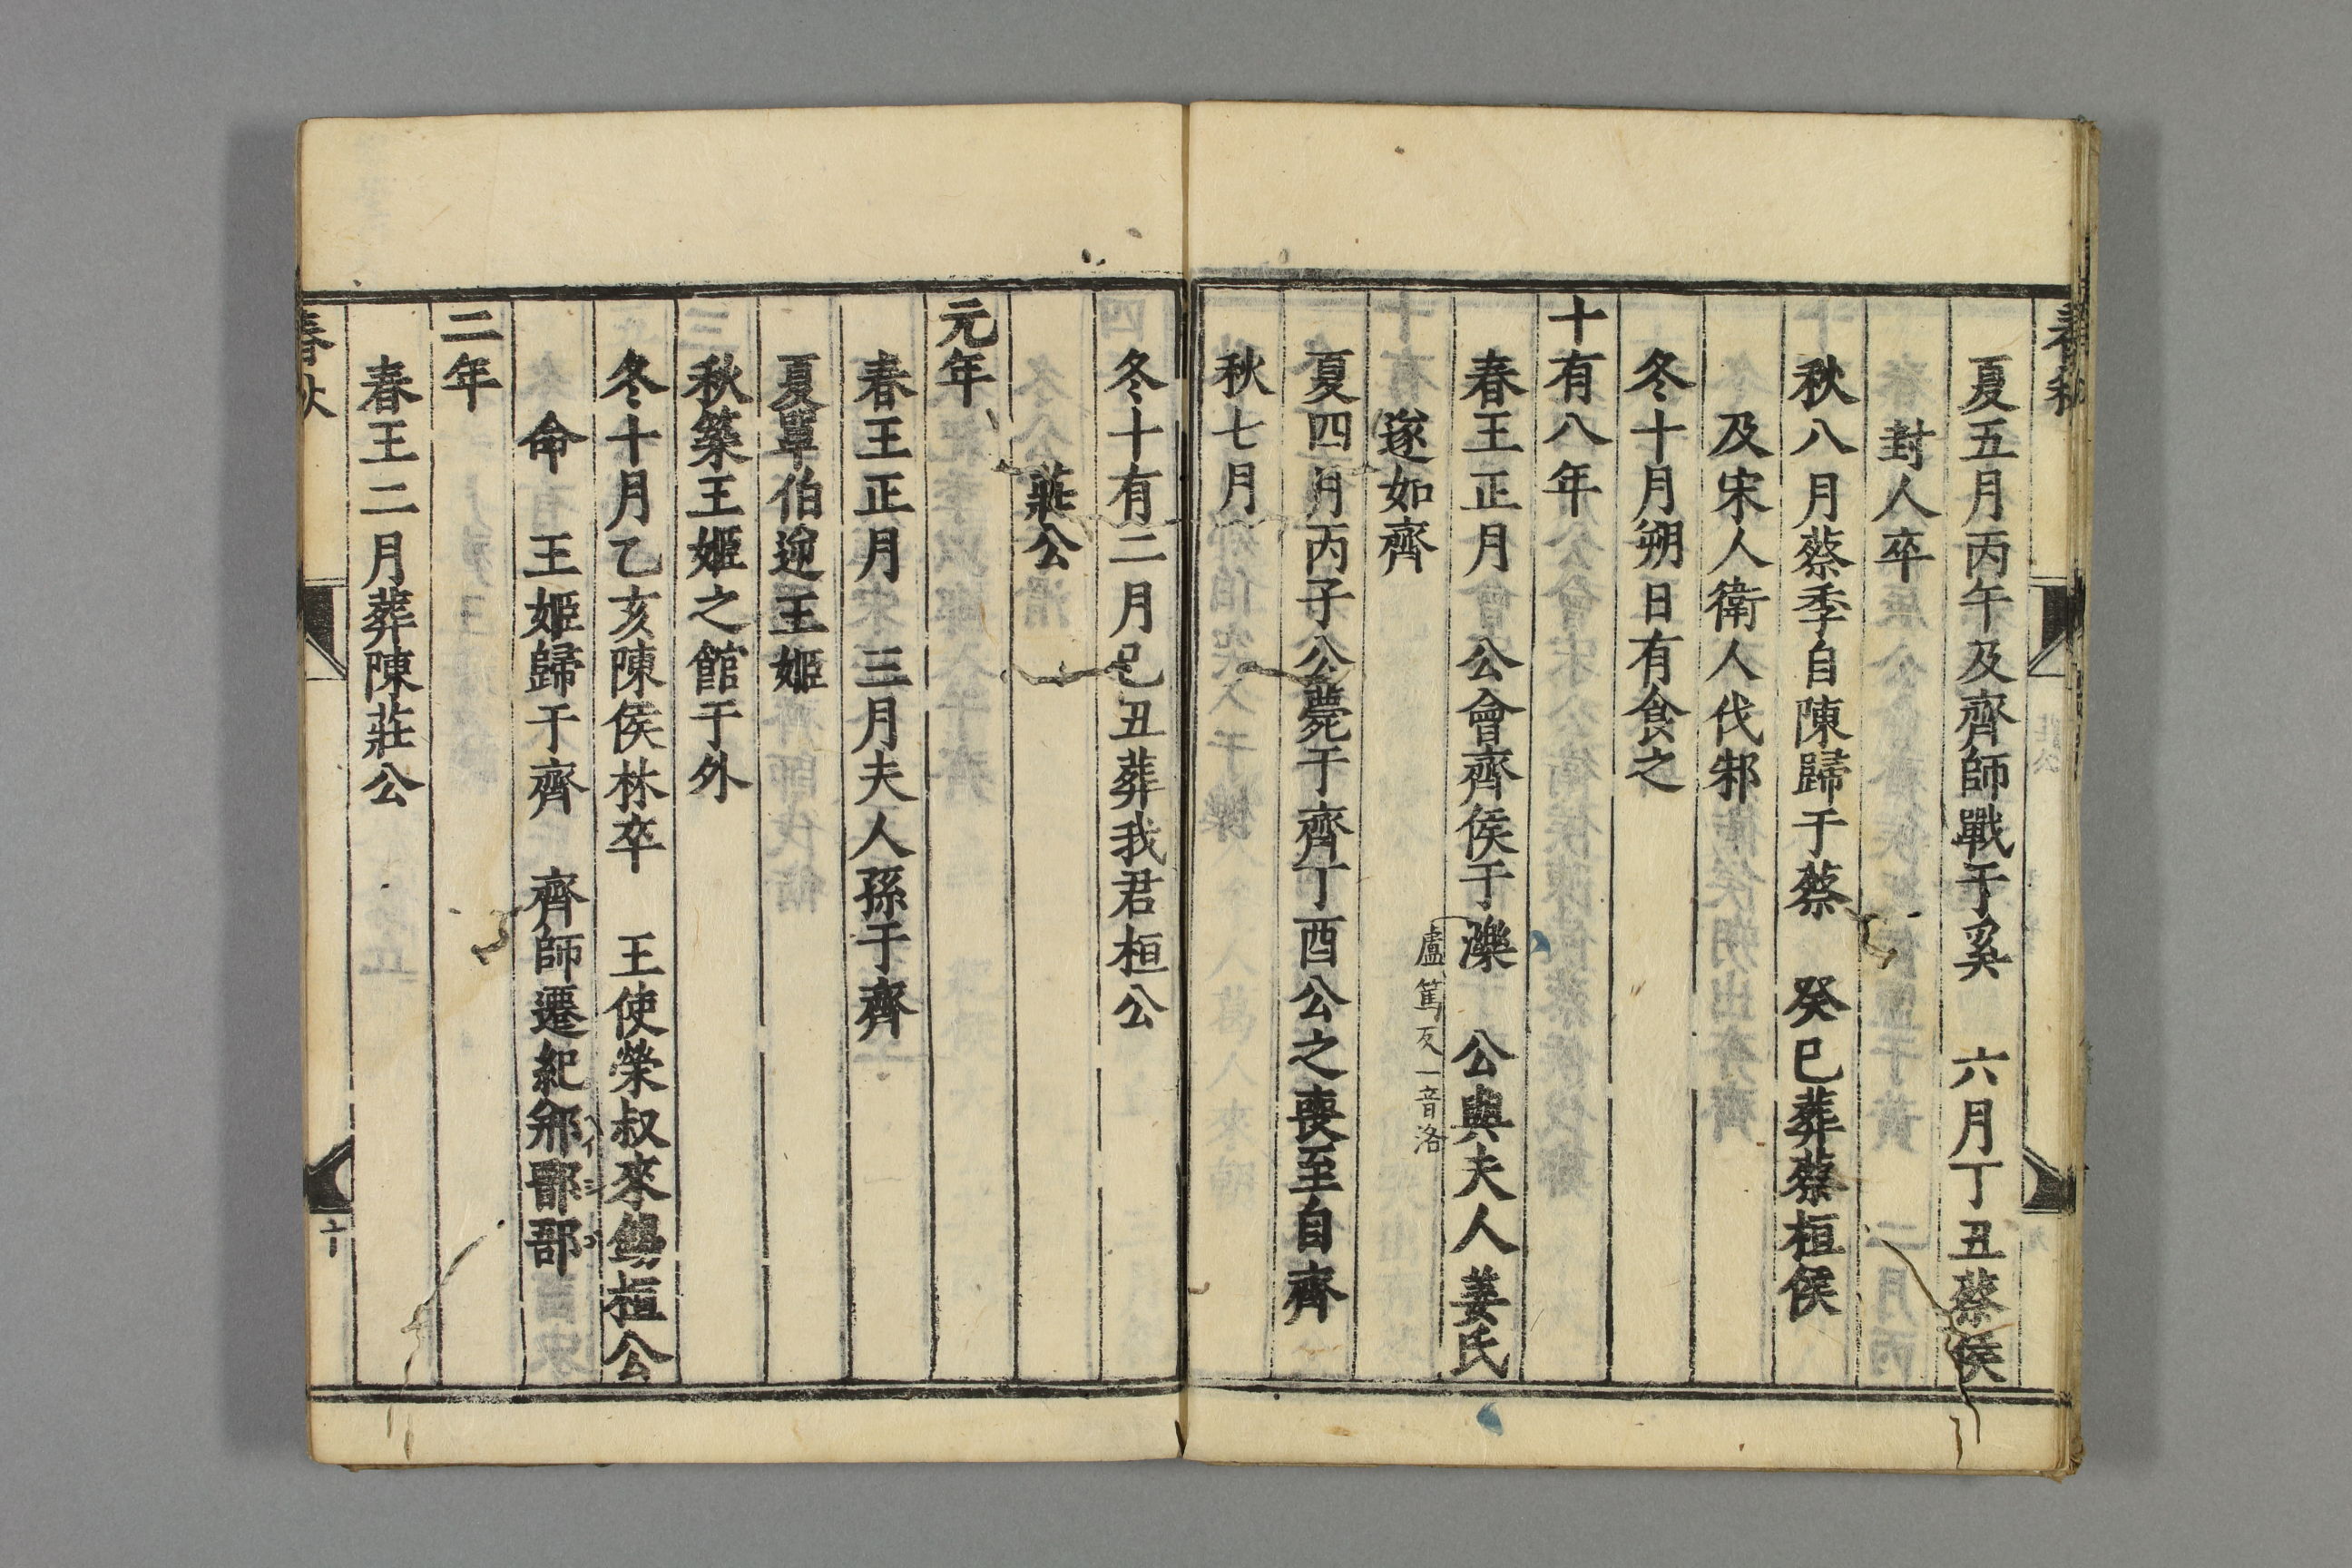 春秋
夏五月丙午及齊師戰于奚　六月丁丑蔡侯
封人卒
秋八月蔡季自陳歸于蔡　癸巳葬蔡桓侯
及宋人衛人伐邾
冬十月朔日有食之
十有八年
春王正月　公會齊侯于濼　公與夫人姜氏
盧篤反一音洛
遂如齊
夏四月丙子公薨于齊丁酉公之喪至自齊
秋七月
冬十有二月己丑葬我君桓公
莊公
元年
春王正月　三月夫人孫于齊
夏單伯逆王姬
秋築王姬之館于外
冬十月乙亥陳侯林卒　王使榮叔來錫桓公
命　王姬歸于齊　齊師遷紀郱鄑郚
二年
春王二月葬陳莊公
春秋
十